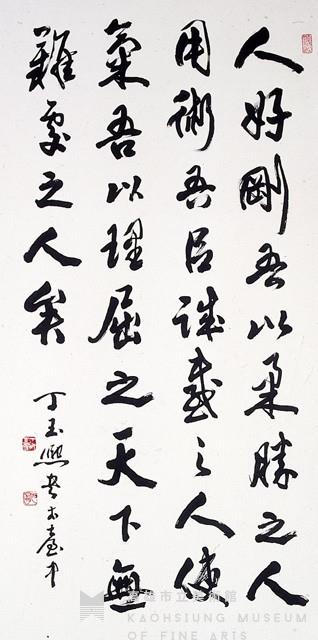 人好剛吾以柔勝之人
用術吾以誠感之人使
氣吾以理屈之天下無
難處之人矣
丁玉熙書於臺中
高雄市立美術館
KAOHSIUNG MUSEUM
OF FINE ARTS